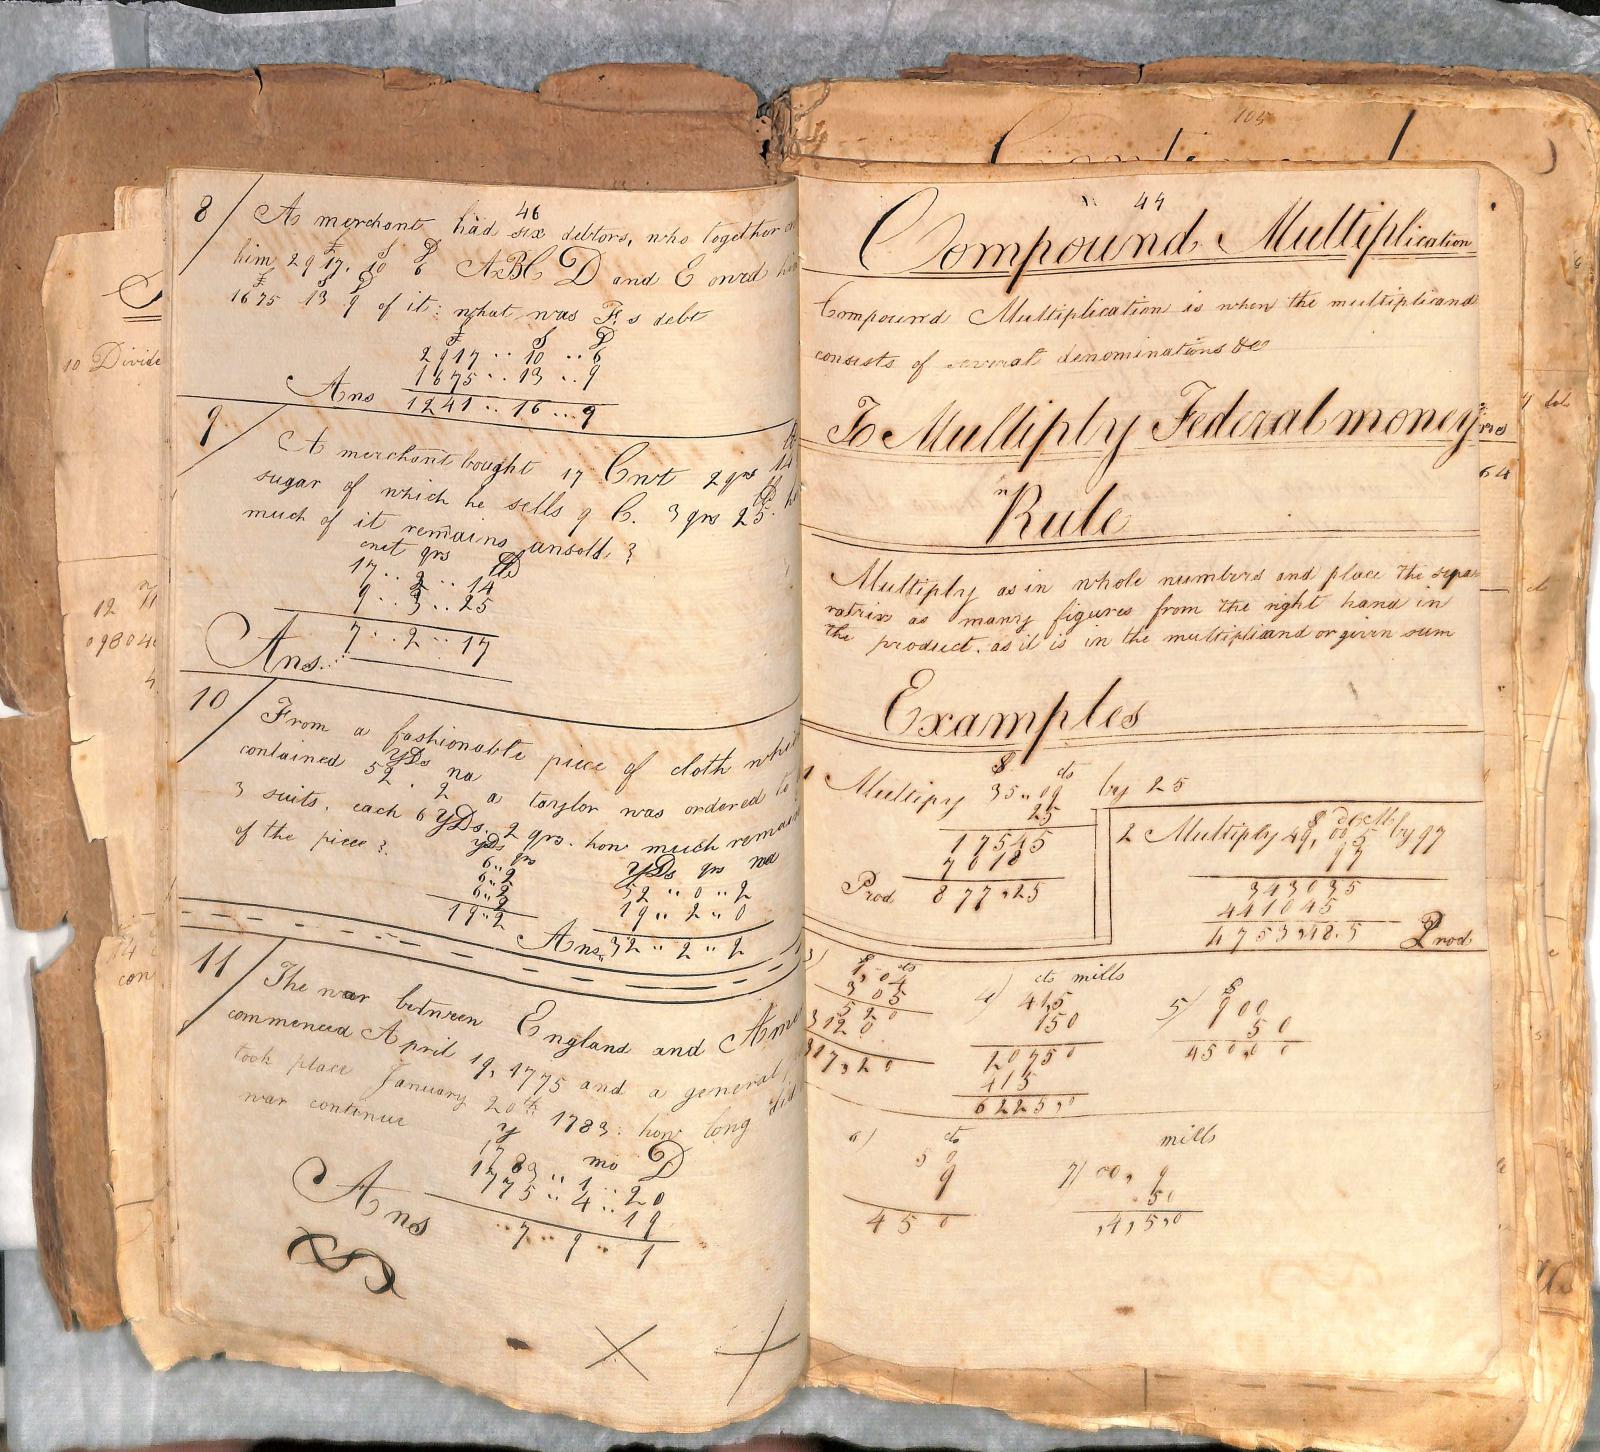 46
8/ A merchant had six debtors, who together
£ S D
him 2917. 10 6 ABC D and E owed
£ S D
1675 13 9 of it: what was Fs debt
£ S D
2917 .. 10 .. 6
1675 .. 13 .. 9
Ans 1241 .. 16 .. 9
9/ A merchant bought 17 Cwt 2 qrs 14
sugar of which he sells 9 C. 3 qrs 25.
much of it remains unsold ?
cwt qrs lb
17 .. 2 .. 14
9 .. 3 .. 25
Ans. 7 .. 2 .. 17
10/ From a fashionable piece of cloth
YDs na
contained 52 . 2 a taylor was ordered to
3 suits, each 6 YDs. 2 qrs. how much
of the piece ?
yDs qrs
6 .. 2
6 .. 2
6 .. 2
19 .. 2
YDs qrs na
52 .. 0 .. 2
19 .. 2 .. 0
Ans 32 .. 2 .. 2
11/ The war between England and
commenced April 19, 1775 and a general
took place January 20th 1783: how long did
war continue
y mo D
1783 .. 1 .. 20
1775 .. 4 .. 19
Ans .. 7 .. 9 .. 1
105
44
Compound Multiplication
Compound Multiplication is when the multiplicand
consists of several denominations &c
To Multiply Federal money
Rule
Multiply as in whole numbers and place the sepa-
ratrix as many figures from the right hand in
the product, as it is in the multipliand or given sum
Examples
$ cts
1 Multipy 35..09 by 25
25
17545
7018
Prod 877,25
$ dcM
2 Multiply 49, 00 5 by 97
97
343035
441045
4753,48.5 Prod
3/ $ cts
1,04
305
520
3120
317,20
4/ cts mills
41,5
150
20750
415
6225,0
5/ $
900
50
450,00
6/ cts
50
9
450
mills
7/ 00, 9
50
,4,5,0
10 Divide
12